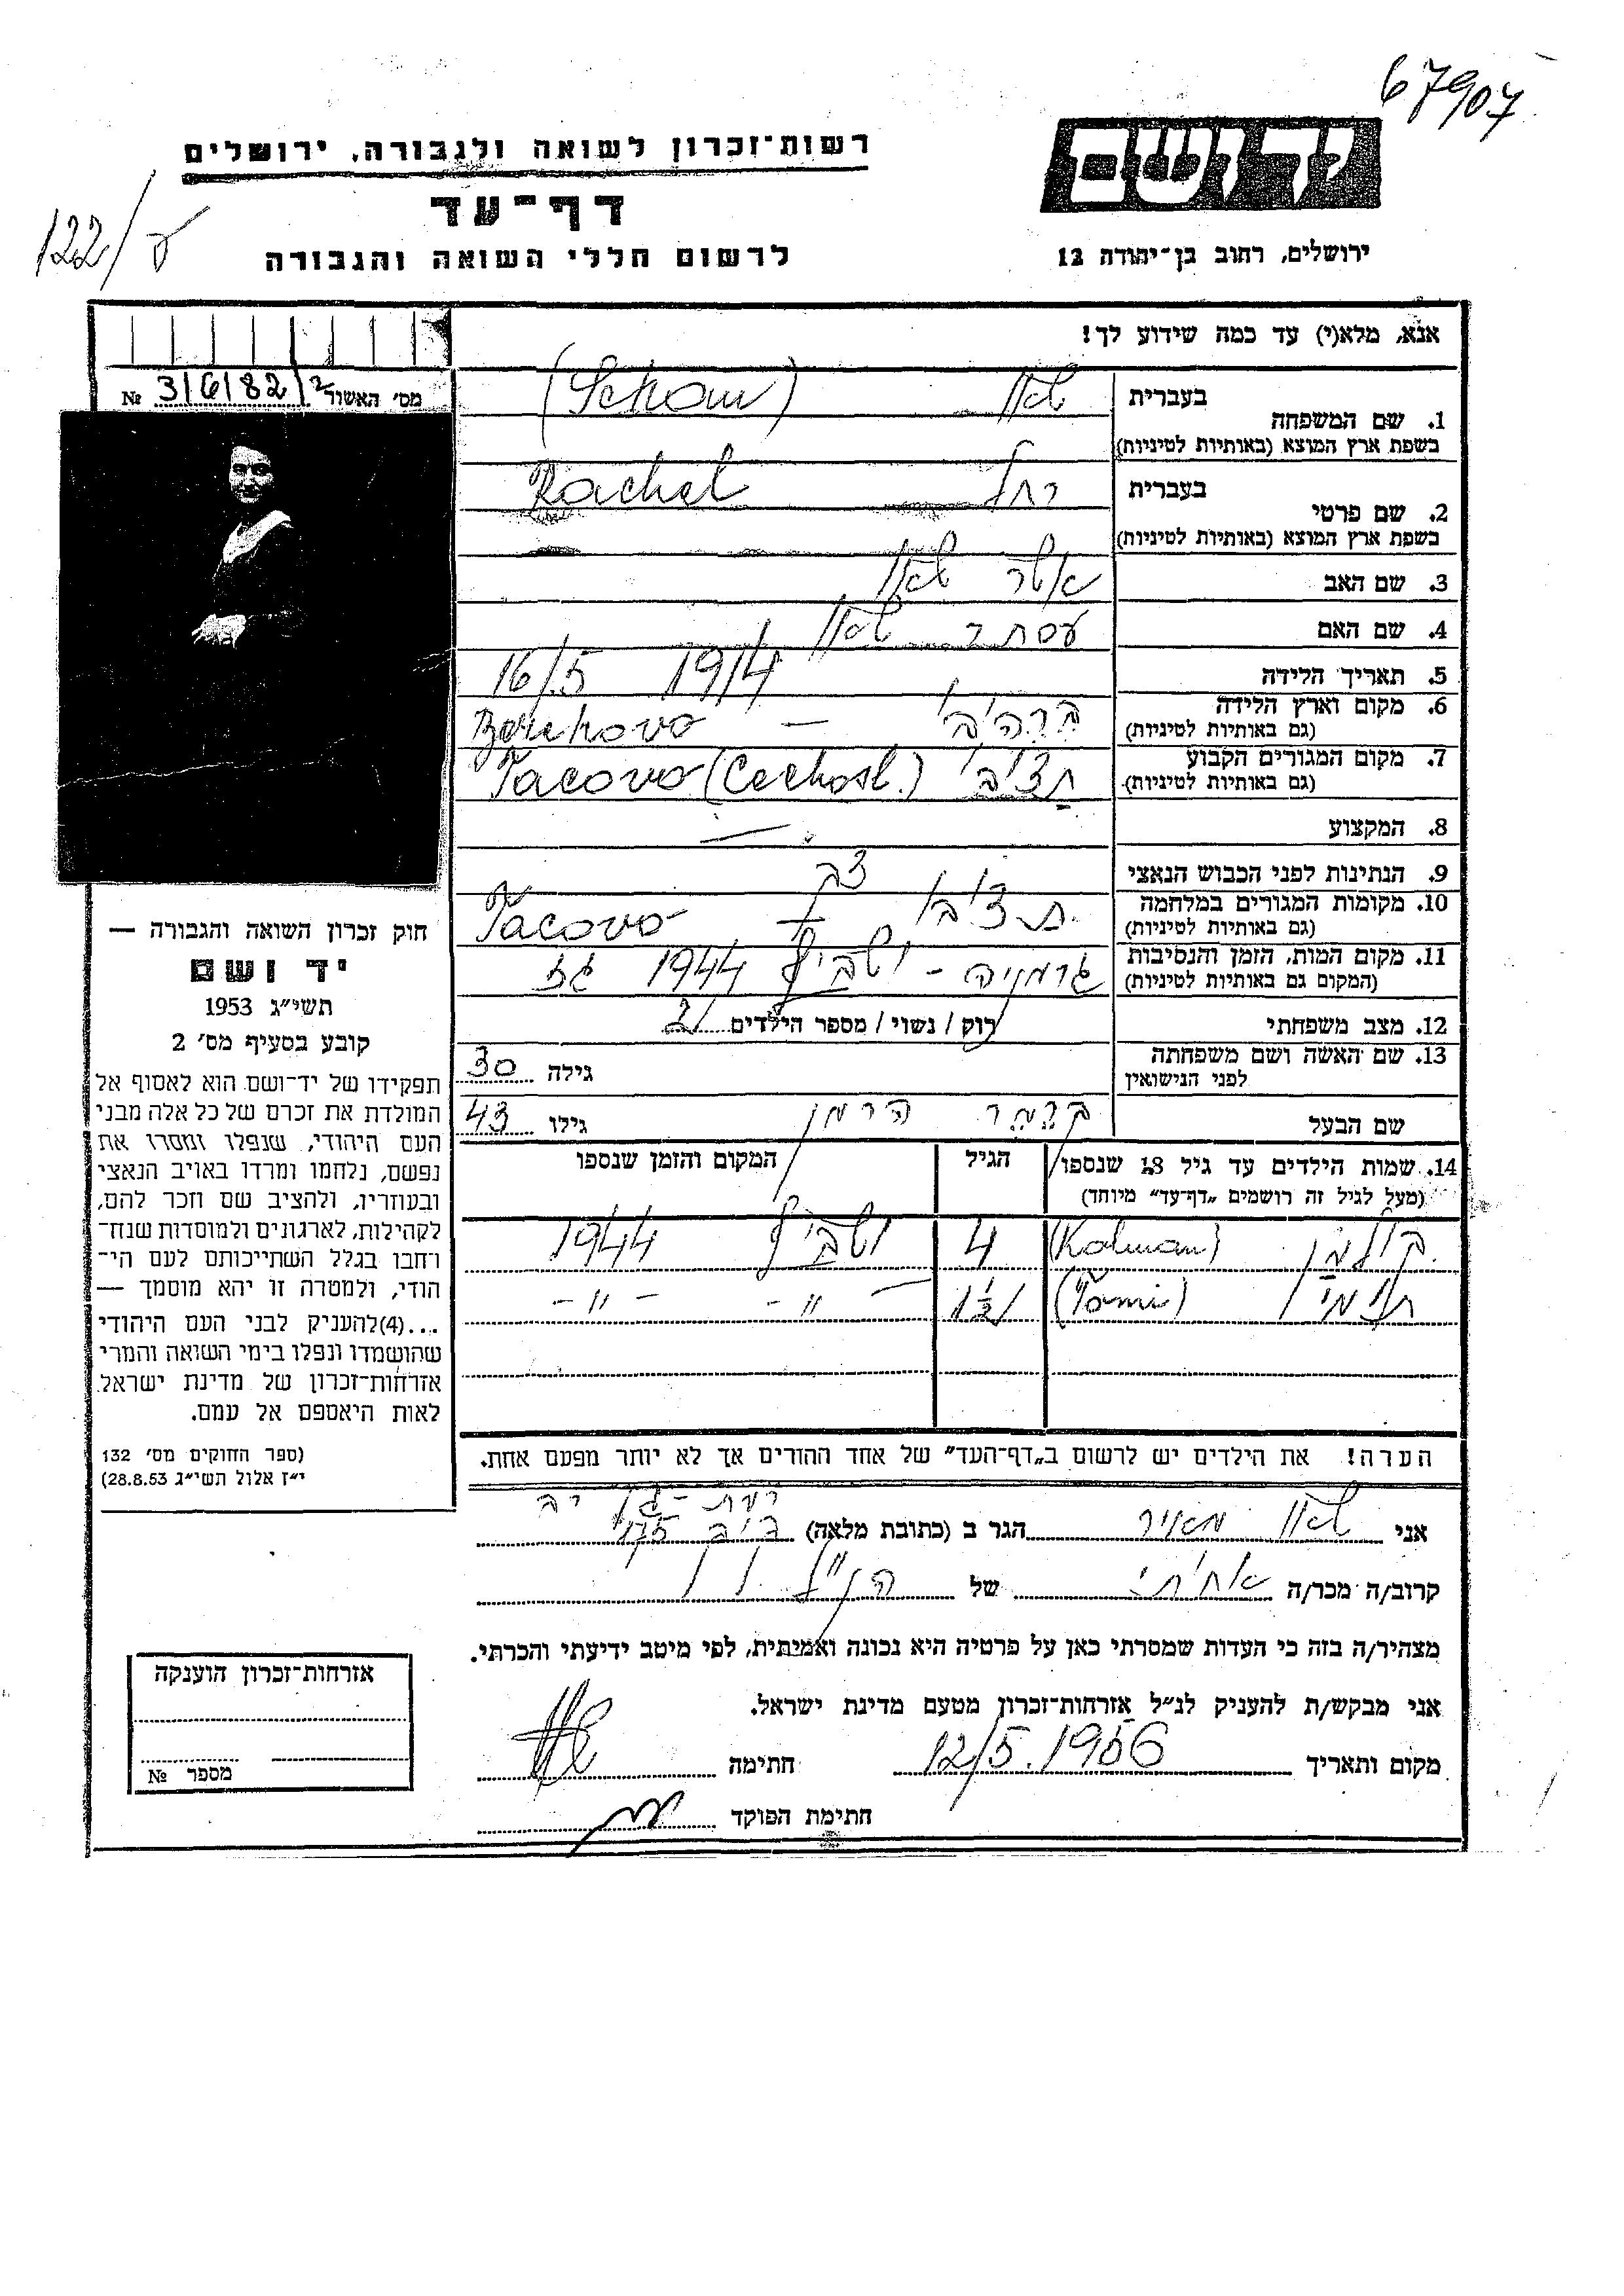 67907
יד ושם
רשות־זכרון לשואה ולגבורה, ירושלים
דף־עד
122/ע
לרשום חללי השואה והגבורה
ירושלים, רחוב בן־יהודה 12
אנא, מלא(י) עד כמה שידוע לך!
מס׳ האשור № 3/6/82/2
1. שם המשפחה
בעברית
(Schon)
בשפת ארץ המוצא (באותיות לטיניות)
2. שם פרטי
בעברית רחל Rachel
בשפת ארץ המוצא (באותיות לטיניות)
3. שם האב אשר
4. שם האם אסתר
5. תאריך הלידה 16/5 1914
6. מקום וארץ הלידה
(גם באותיות לטיניות) Berehovo
7. מקום המגורים הקבוע
(גם באותיות לטיניות) Tacovo (Cechosl.)
8. המקצוע —
9. הנתינות לפני הכבוש הנאצי צכ
10. מקומות המגורים במלחמה
(גם באותיות לטיניות) Tacovo
11. מקום המות, הזמן והנסיבות
(המקום גם באותיות לטיניות) גרמניה - 1944 גז
12. מצב משפחתי רוק / נשוי / מספר הילדים 2
13. שם האשה ושם משפחתה
לפני הנישואין גילה 30
שם הבעל הרמן גילו 43
14. שמות הילדים עד גיל 18 שנספו הגיל המקום והזמן שנספו
(מעל לגיל זה רושמים „דף־עד״ מיוחד)
קולמן (Kalman) 4 1944
(Tomi) 1½ -"- -"-
הערה! את הילדים יש לרשום ב„דף־העד״ של אחד ההורים אך לא יותר מפעם אחת.
חוק זכרון השואה והגבורה —
יד ושם
תשי״ג 1953
קובע בסעיף מס׳ 2
תפקידו של יד־ושם הוא לאסוף אל
המולדת את זכרם של כל אלה מבני
העם היהודי, שנפלו ומסרו את
נפשם, נלחמו ומרדו באויב הנאצי
ובעוזריו, ולהציב שם וזכר להם,
לקהילות, לארגונים ולמוסדות שנח־
רבו בגלל השתייכותם לעם הי־
הודי, ולמטרה זו יהא מוסמך —
...(4)להעניק לבני העם היהודי
שהושמדו ונפלו בימי השואה והמרי
אזרחות־זכרון של מדינת ישראל
לאות היאספם אל עמם.
(ספר החוקים מס׳ 132
י״ז אלול תשי״ג 28.8.53)
רמת-גן
אני מאיר הגר ב (כתובת מלאה)
קרוב/ה מכר/ה אחותי של הנ"ל
מצהיר/ה בזה כי העדות שמסרתי כאן על פרטיה היא נכונה ואמיתית, לפי מיטב ידיעתי והכרתי.
אני מבקש/ת להעניק לנ״ל אזרחות־זכרון מטעם מדינת ישראל.
מקום ותאריך 12/5.1956 חתימה
חתימת הפוקד
אזרחות־זכרון הוענקה
מספר №